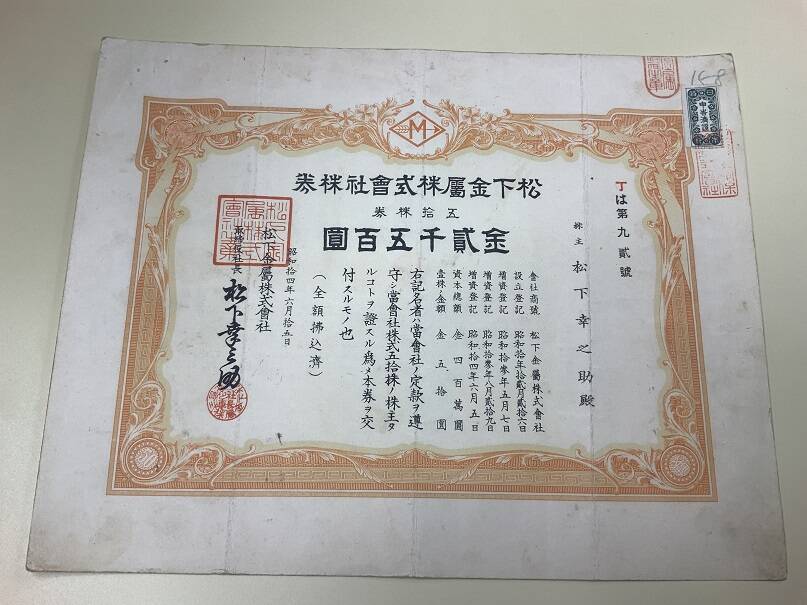 M
松下金屬株式會社株券
五拾株券
金貳千五百圓
丁は第九貳號
株主 松下幸之助殿
會社商號 松下金屬株式會社
設立登記 昭和拾年拾貳月貳拾六日
增資登記 昭和拾參年五月七日
增資登記 昭和拾參年八月貳拾九日
增資登記 昭和拾四年六月五日
資本總額 金四百萬圓
壹株ノ金額 金五拾圓
右記名者ハ當會社ノ定款ヲ遵
守シ當會社株式五拾株ノ株主タ
ルコトヲ證スル爲メ本券ヲ交
付スルモノ也
(全額拂込濟)
昭和拾四年六月拾五日
松下金屬株式會社
取締役社長 松下幸之助
168